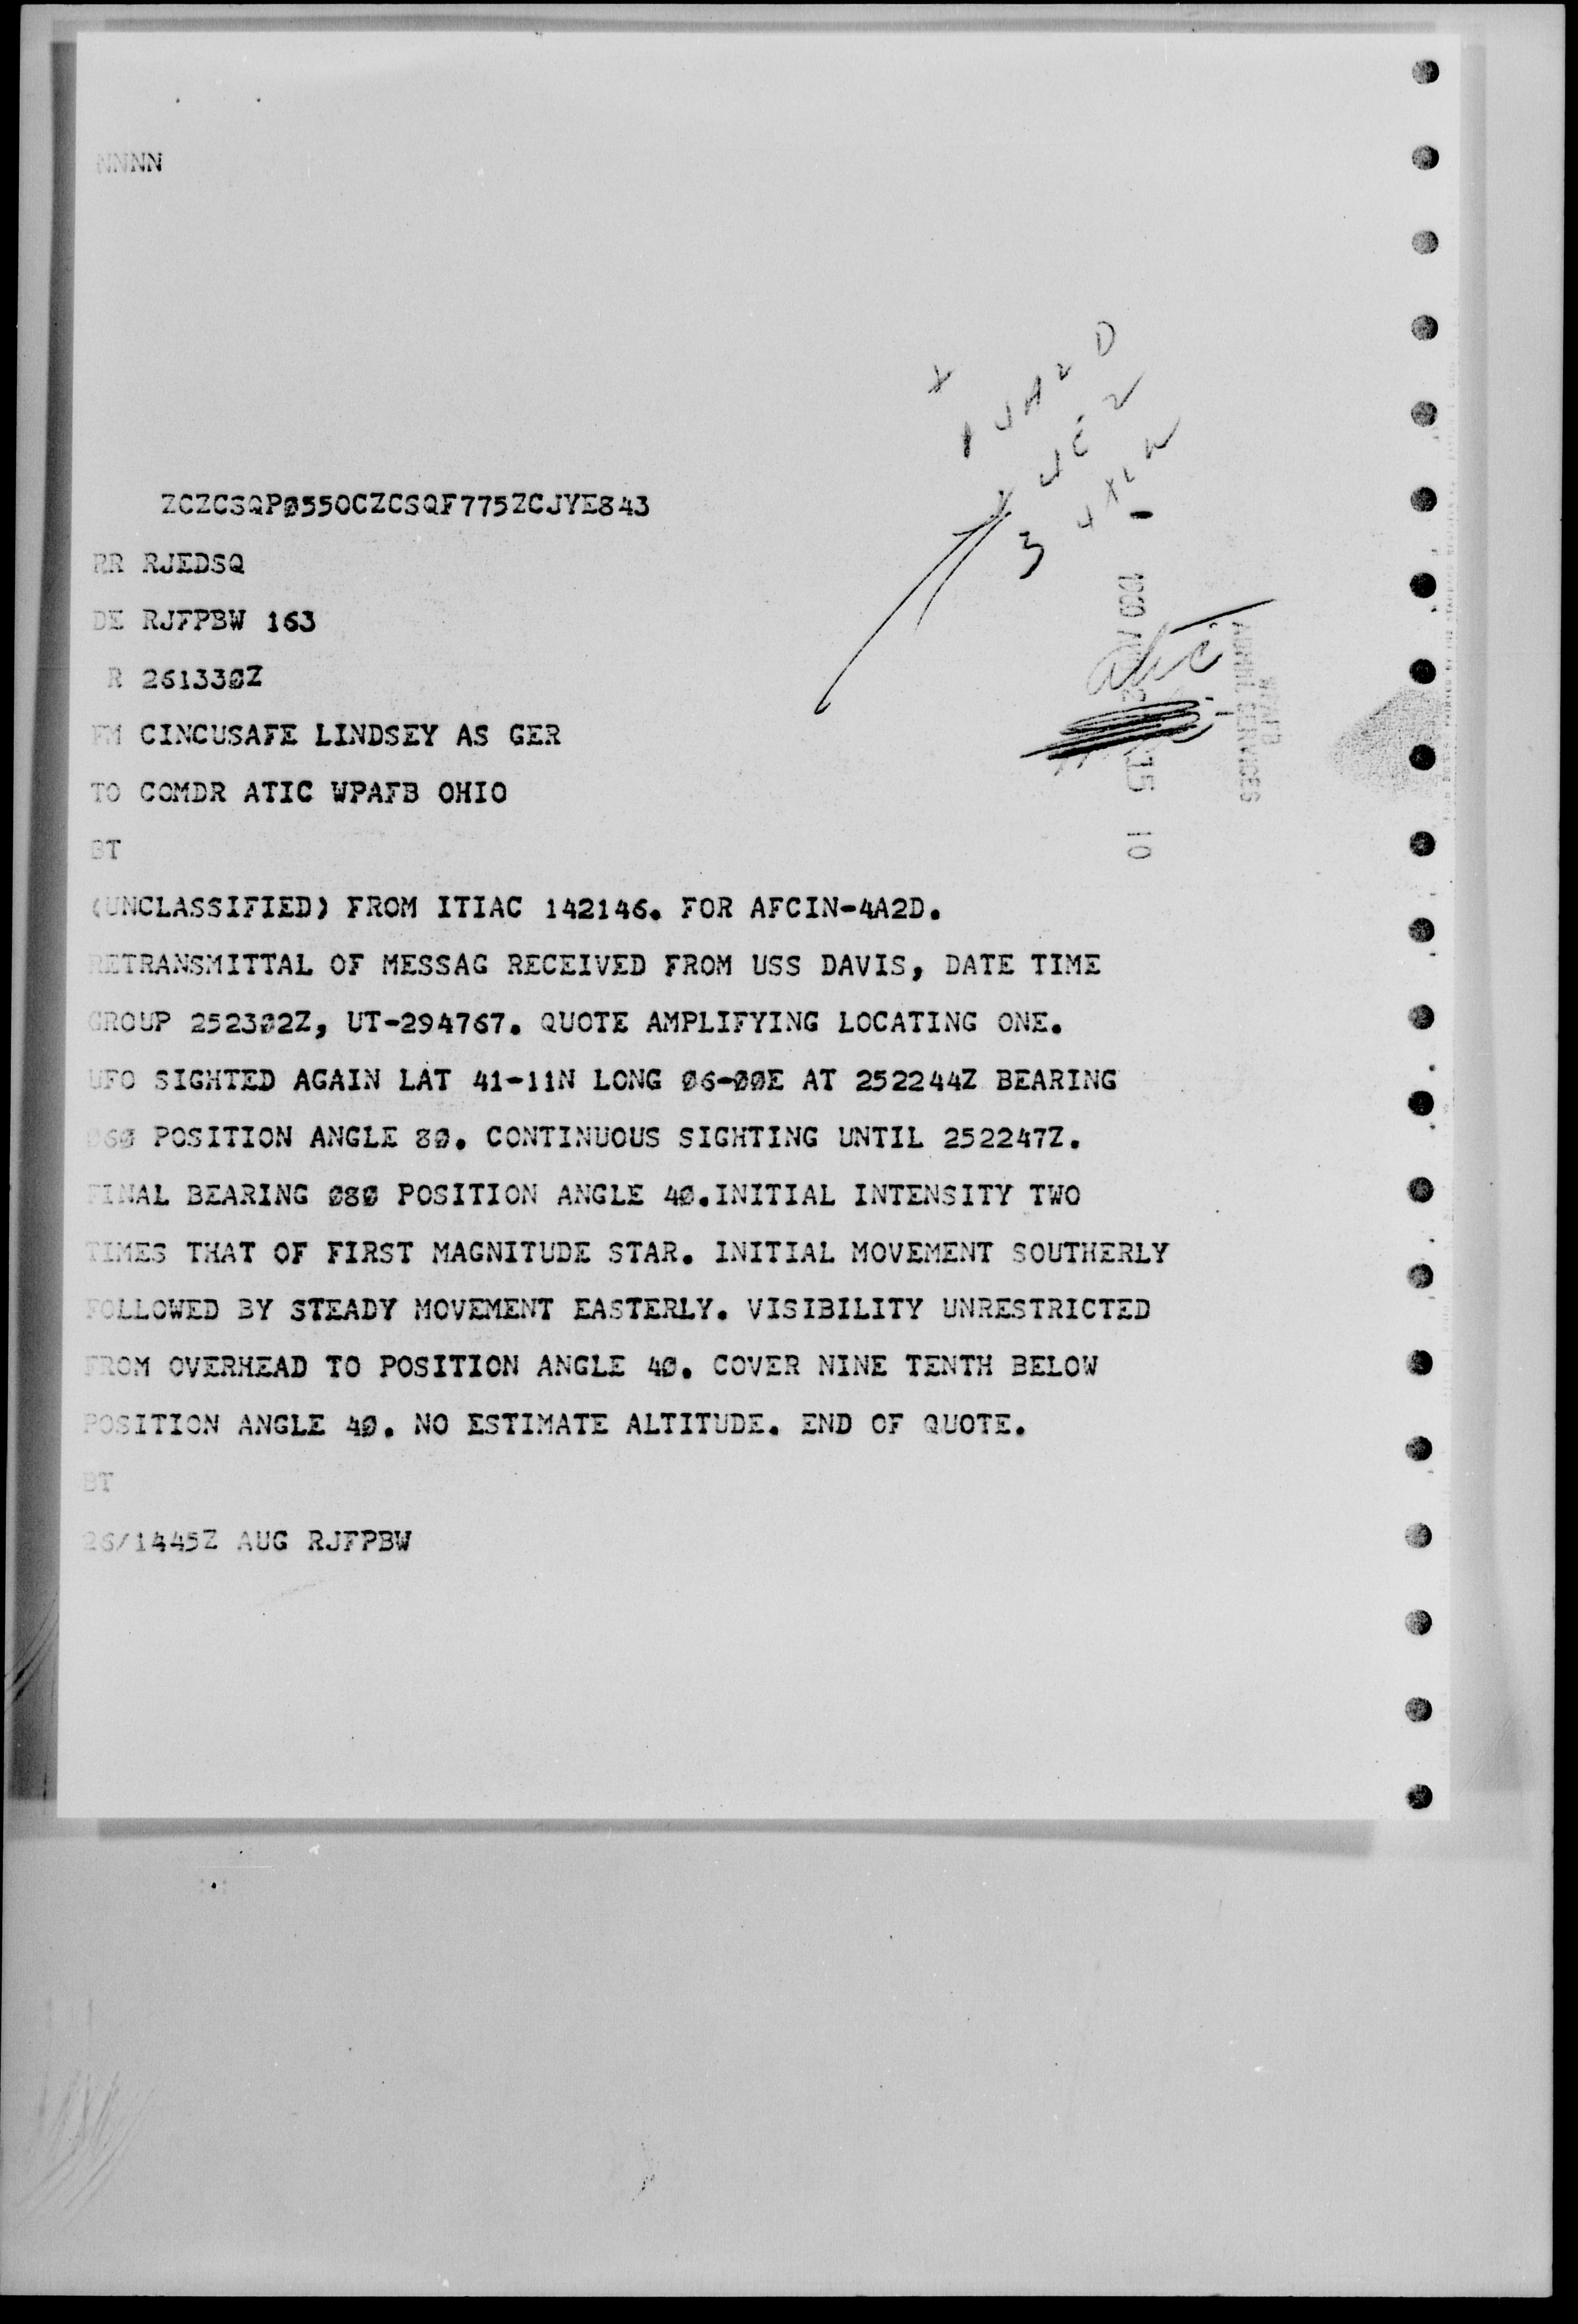 NNNN
ZCZCSQPØ550CZCSQF775ZCJYE843
RR RJEDSQ
DE RJFPBW 163
R 261330Z
FM CINCUSAFE LINDSEY AS GER
TO COMDR ATIC WPAFB OHIO
BT
(UNCLASSIFIED) FROM ITIAC 142146. FOR AFCIN-4A2D.
RETRANSMITTAL OF MESSAG RECEIVED FROM USS DAVIS, DATE TIME
GROUP 2523Ø2Z, UT-294767. QUOTE AMPLIFYING LOCATING ONE.
UFO SIGHTED AGAIN LAT 41-11N LONG Ø6-ØØE AT 252244Z BEARING
Ø6Ø POSITION ANGLE 8Ø. CONTINUOUS SIGHTING UNTIL 252247Z.
FINAL BEARING Ø8Ø POSITION ANGLE 4Ø.INITIAL INTENSITY TWO
TIMES THAT OF FIRST MAGNITUDE STAR. INITIAL MOVEMENT SOUTHERLY
FOLLOWED BY STEADY MOVEMENT EASTERLY. VISIBILITY UNRESTRICTED
FROM OVERHEAD TO POSITION ANGLE 4Ø. COVER NINE TENTH BELOW
POSITION ANGLE 4Ø. NO ESTIMATE ALTITUDE. END OF QUOTE.
BT
26/1445Z AUG RJFPBW